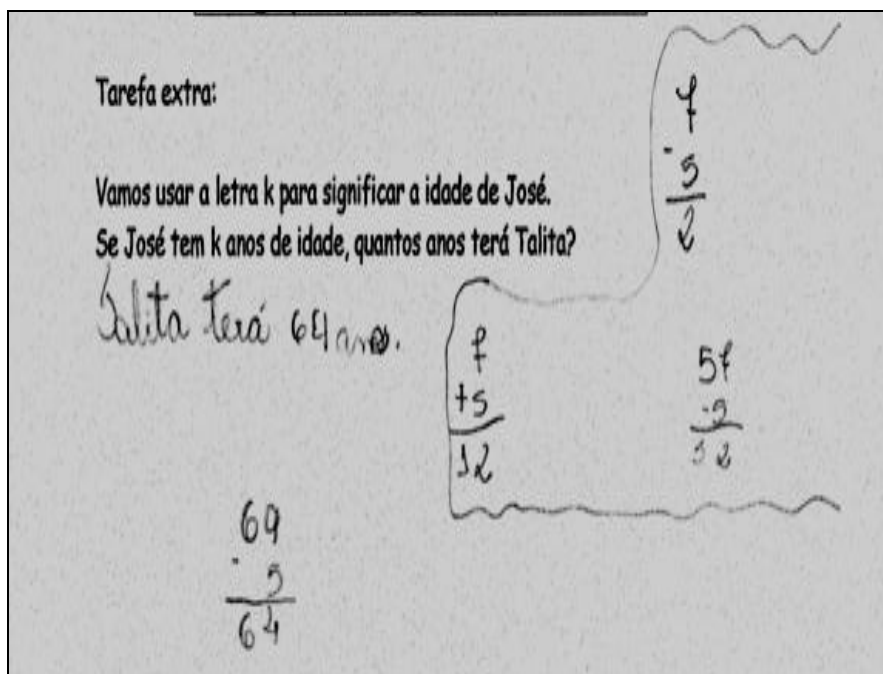 Tarefa extra:
Vamos usar a letra k para significar a idade de José.
Se José tem k anos de idade, quantos anos terá Talita?
Talita terá 64 anos.
7
- 5
2
7
+5
12
57
-5
52
69
- 5
64